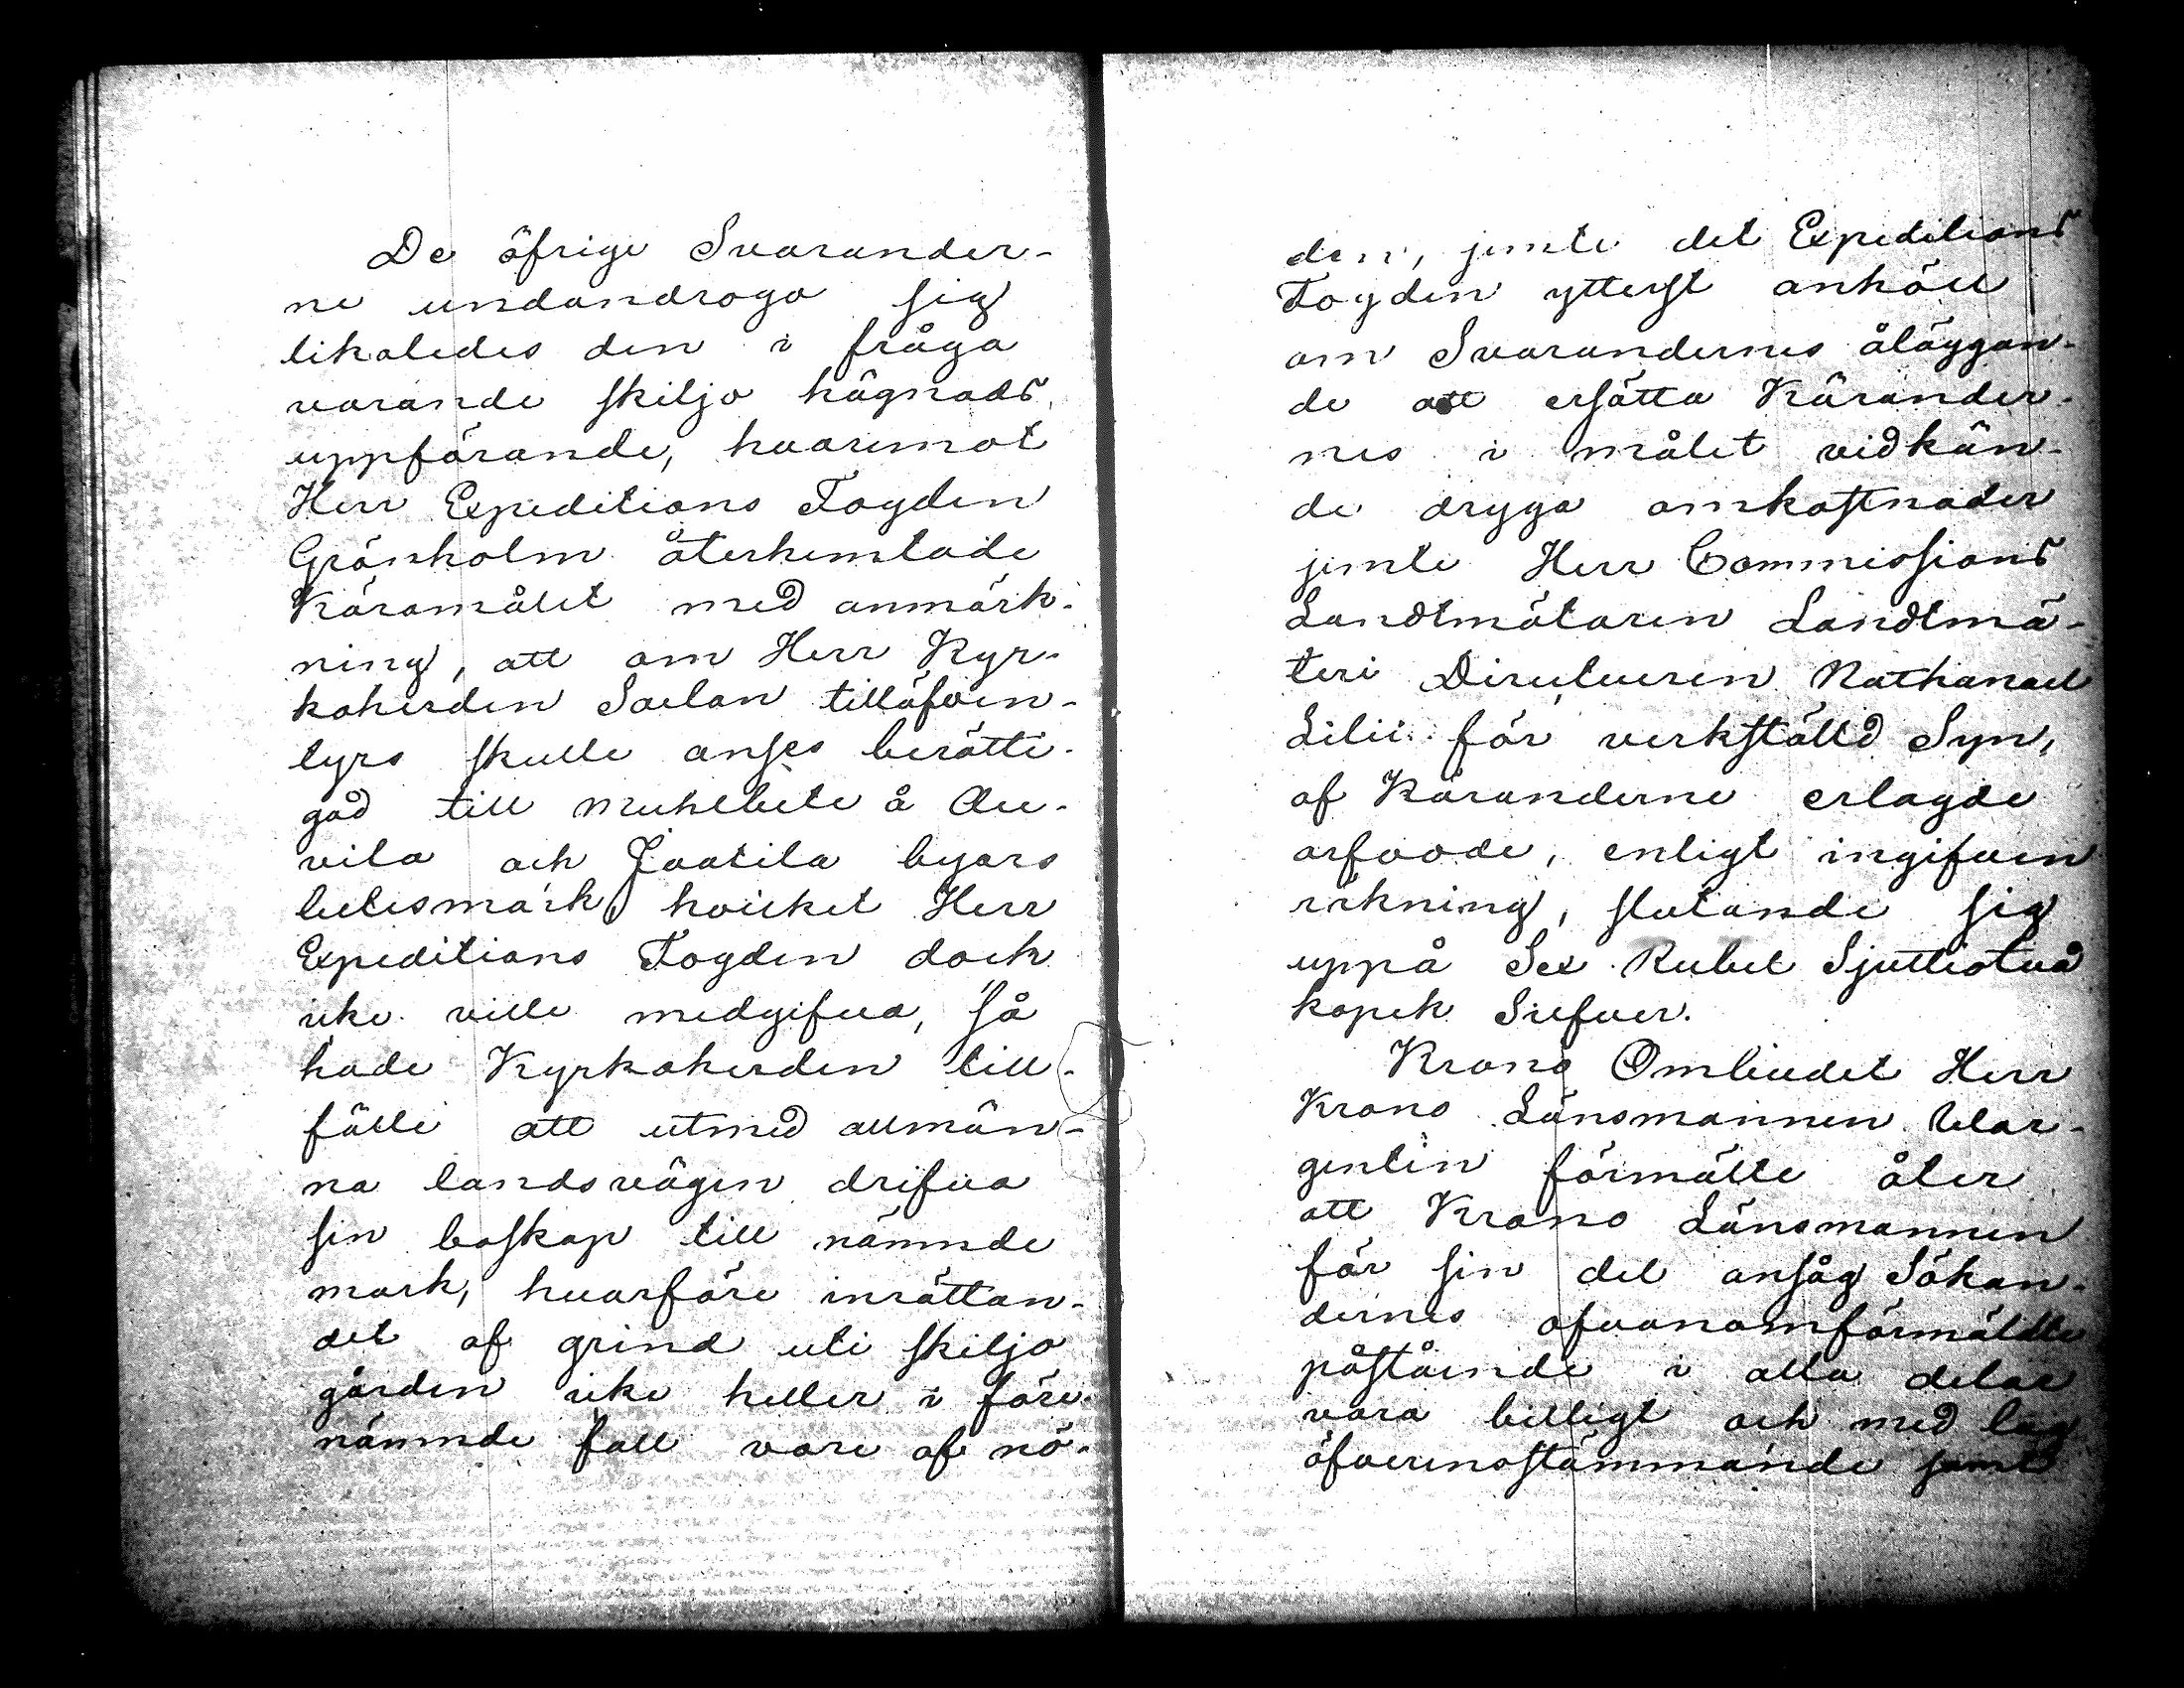 De öfrige Svarander-
ne undandrogo sig
likaledes den i fråga
varande skiljo hägnads
uppförande, hvaremot
Herr Expeditions Fogden
Grönholm återhemtade
Käromålet med anmärk-
ning, att om Herr Kyr-
koherden Saelan tilläfven-
tyrs skulle anses berätti-
gad till muhlbete å Au-
vila och Jaatila byars
betesmark, hvilket Herr
Expeditions Fogden dock
icke ville medgifva, så
hade Kyrkoherden till-
fälle att utmed allmän-
na landsvägen drifva
sin boskap till nämnde
mark, hvarföre inrättan-
det af grind uti skiljo
gården icke heller i före-
nämnde fall vore af nö-
den, jemte det Expeditions
Fogden ytterst anhöll
om Svarandernes åläggan-
de att ersätta Kärander-
nes i målet vidkän-
de dryga omkostnader
jemte Herr Commissions
Landtmätaren Landtmä-
teri Direkteuren Nathanael
Lilii för verkställd Syn,
af Käranderne erlagde
arfvode, enligt ingifven
räkning, slutande sig
uppå Sex Rubel Sjuttiotvå
kopek Silfver.
Krono Ombudet Herr
Krono Länsmannen War-
gentin förmälte åter
att Krono Länsmannen
för sin del ansåg Sökan-
dernes ofvananförmäldte
påstående i alla delar
vara billigt och med lag
öfverensstämmande samt